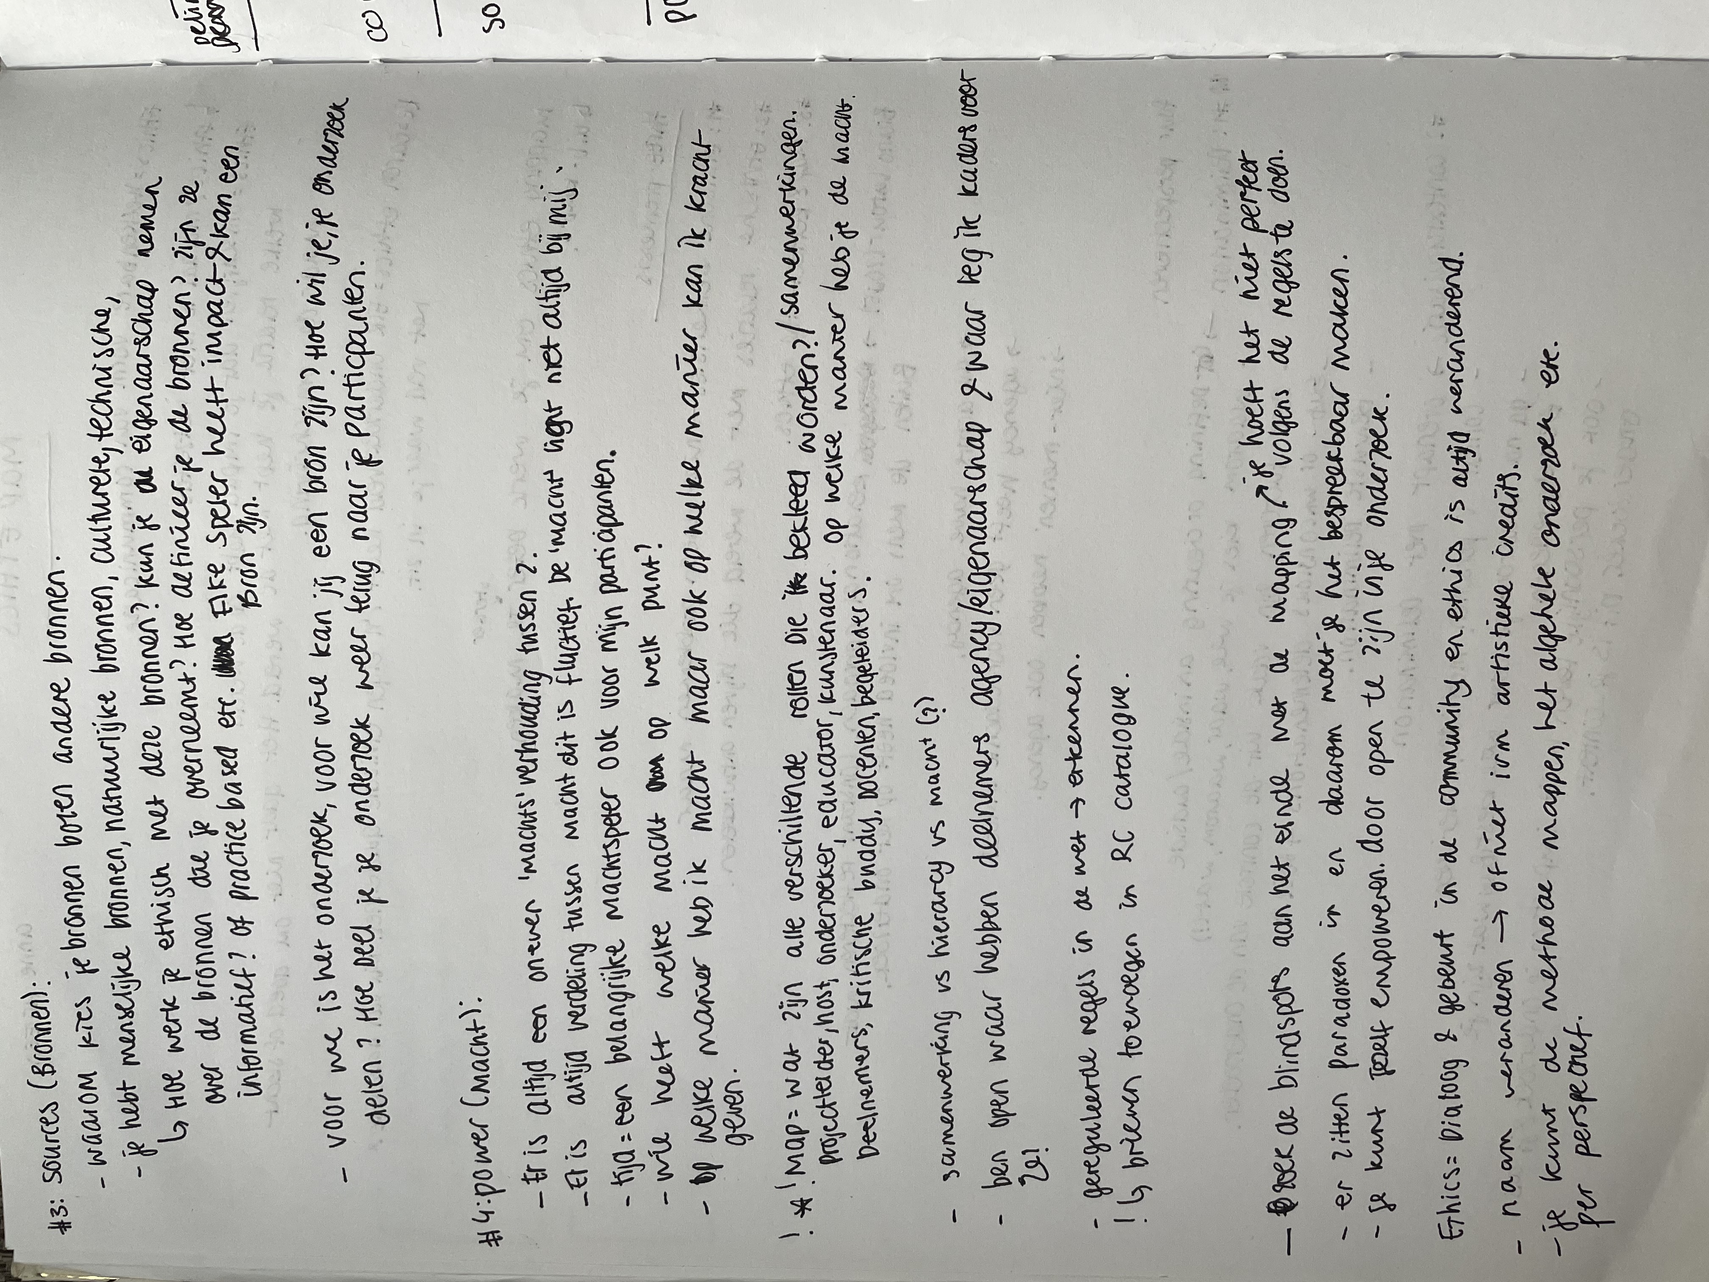 #3: sources (Bronnen):
- waarom kies je bronnen boven andere bronnen.
- je hebt menselijke bronnen, natuurlijke bronnen, culturele, technische,
↳ Hoe werk je ethisch met deze bronnen? kun je eigenaarschap nemen
over de bronnen die je overneemt? Hoe definieer je de bronnen? zijn ze
informatief? of practice based etc. Elke speler heeft impact & kan een
Bron zijn.
- voor wie is het onderzoek, voor wie kan jij een bron zijn? Hoe wil je, je onderzoek
delen? Hoe deel je je onderzoek weer terug naar je participanten.
#4: power (macht):
- Er is altijd een oneven 'machts' verhouding tussen?
- Er is altijd verdeling tussen macht dit is fluctief. De 'macht' ligt niet altijd bij mij.
- tijd = een belangrijke machtspeler ook voor mijn participanten.
- wie heeft welke macht op welk punt?
- op welke manier heb ik macht maar ook op welke manier kan ik kracht
geven.
! * 'Map = wat zijn alle verschillende rollen die bekleed worden? / samenwerkingen.
projectleider, host, onderzoeker, educator, kunstenaar. op welke manier heb je de macht.
Deelnemers, kritische buddy, docenten, begeleiders.
- samenwerking vs hierarcy vs macht (?)
- ben open waar hebben deelnemers agency/eigenaarschap & waar leg ik kaders voor
ze!
- gereguleerde regels in de wet → erkennen.
! ↳ brieven toevoegen in RC catalogue.
- zoek de blindspots aan het einde met de mapping ↗ je hoeft het niet perfect
volgens de regels te doen.
- er zitten paradoxen in en daarom moet je het bespreekbaar maken.
- je kunt jezelf empoweren door open te zijn in je onderzoek.
Ethics = Dialoog & gebeurt in de community en ethics is altijd veranderend.
- naam veranderen → of niet ivm artistieke credits.
- je kunt de methode mappen, het algehele onderzoek etc.
per perspectief.